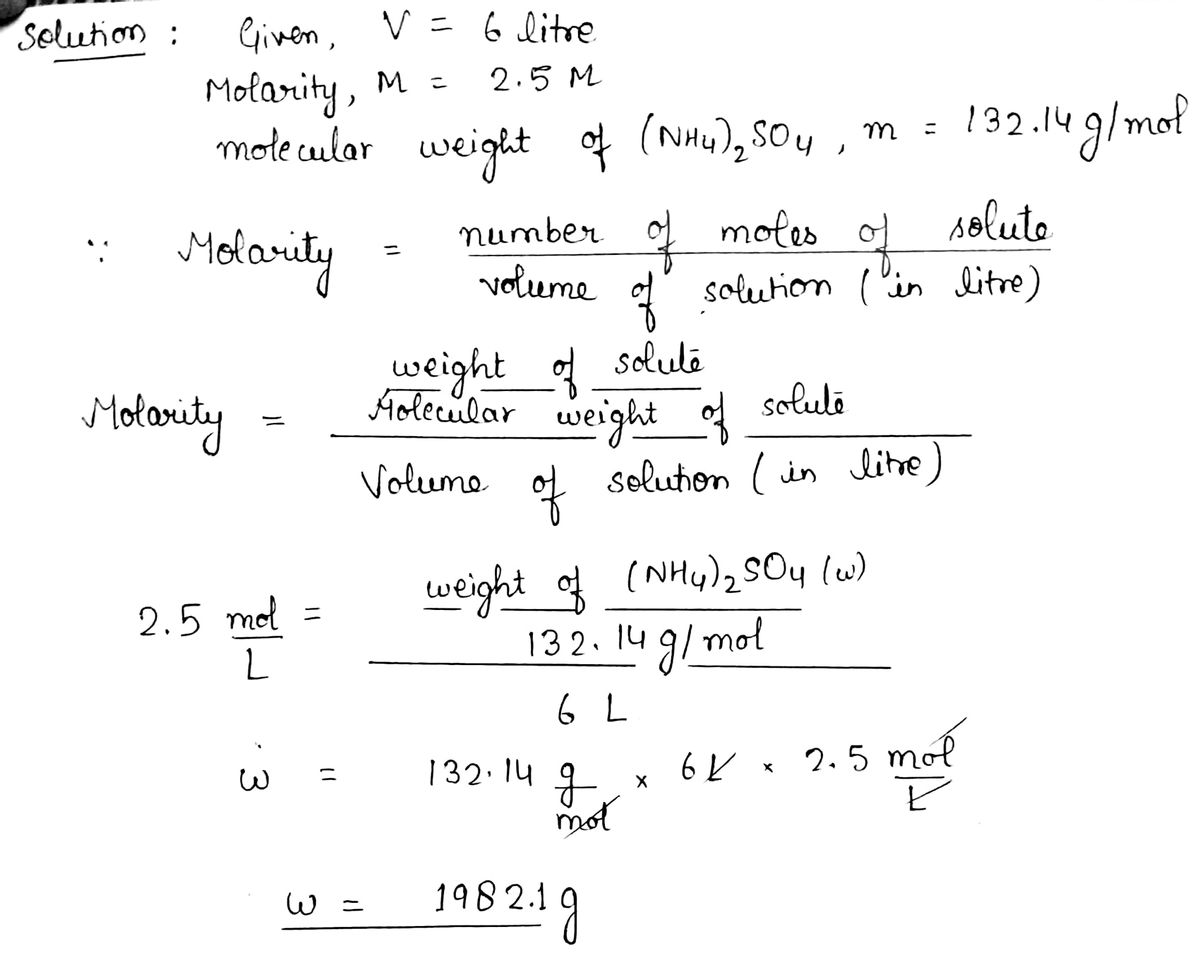 Solution : Given, V = 6 litre
Molarity, M = 2.5 M
molecular weight of (NH4)2 SO4 , m = 132.14 g/mol
∵ Molarity = number of moles of solute
volume of solution (in litre)
weight of solute
Molarity = Molecular weight of solute
Volume of solution (in litre)
weight of (NH4)2 SO4 (w)
2.5 mol/L = 132.14 g/mol
6 L
w = 132.14 g/mol × 6 L × 2.5 mol/L
w = 1982.1 g